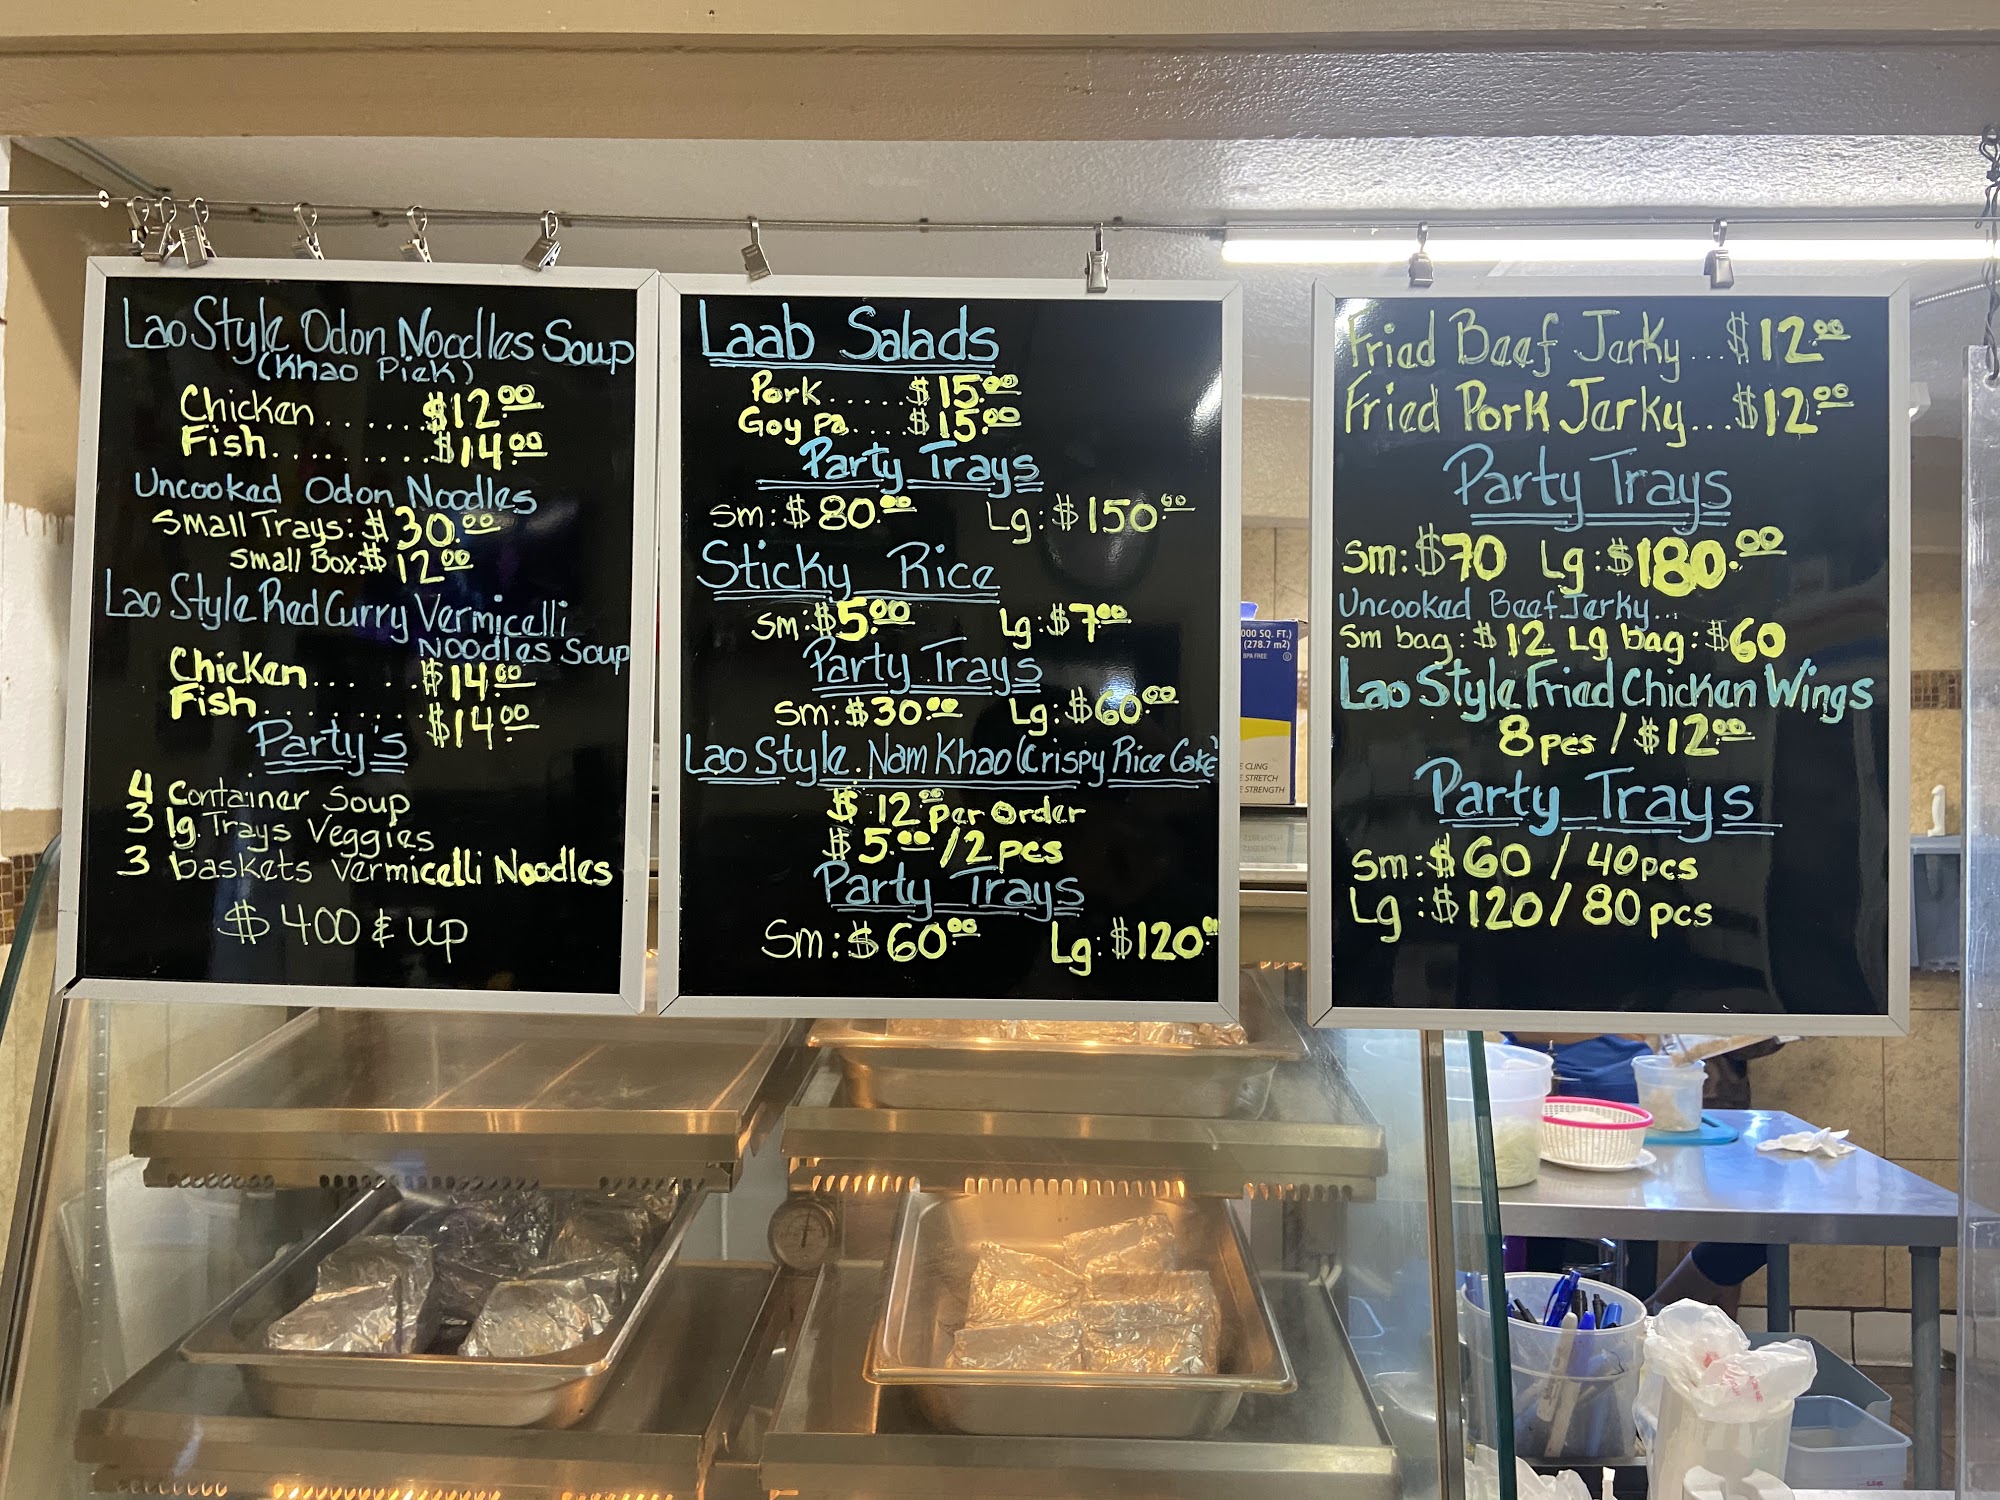 Lao Style Odon Noodles Soup
(Khao Piek)
Chicken......$12.00
Fish.........$14.00
Uncooked Odon Noodles
Small Trays: $30.00
Small Box: $12.00
Lao Style Red Curry Vermicelli
Noodles Soup
Chicken... ...$14.00
Fish........$14.00
Party's
4 Container Soup
3 lg. Trays Veggies
3 baskets Vermicelli Noodles
$400 & up
Laab Salads
Pork.....$15.00
Goy Pa....$15.00
Party Trays
Sm: $80.00 Lg: $150.00
Sticky Rice
Sm: $5.00 Lg: $7.00
Party Trays
Sm: $30.00 Lg: $60.00
Lao Style Nam Khao (Crispy Rice Cake)
$12.00 Per Order
$5.00/2 pcs
Party Trays
Sm: $60.00 Lg: $120.00
Fried Beef Jerky...$12.00
Fried Pork Jerky...$12.00
Party Trays
Sm: $70 Lg: $180.00
Uncooked Beef Jerky...
Sm bag: $12 Lg bag: $60
Lao Style Fried Chicken Wings
8 pcs / $12.00
Party Trays
Sm: $60 / 40 pcs
Lg: $120 / 80 pcs
000 SQ. FT.)
(278.7 m2)
BPA FREE
CLING
STRETCH
STRENGTH